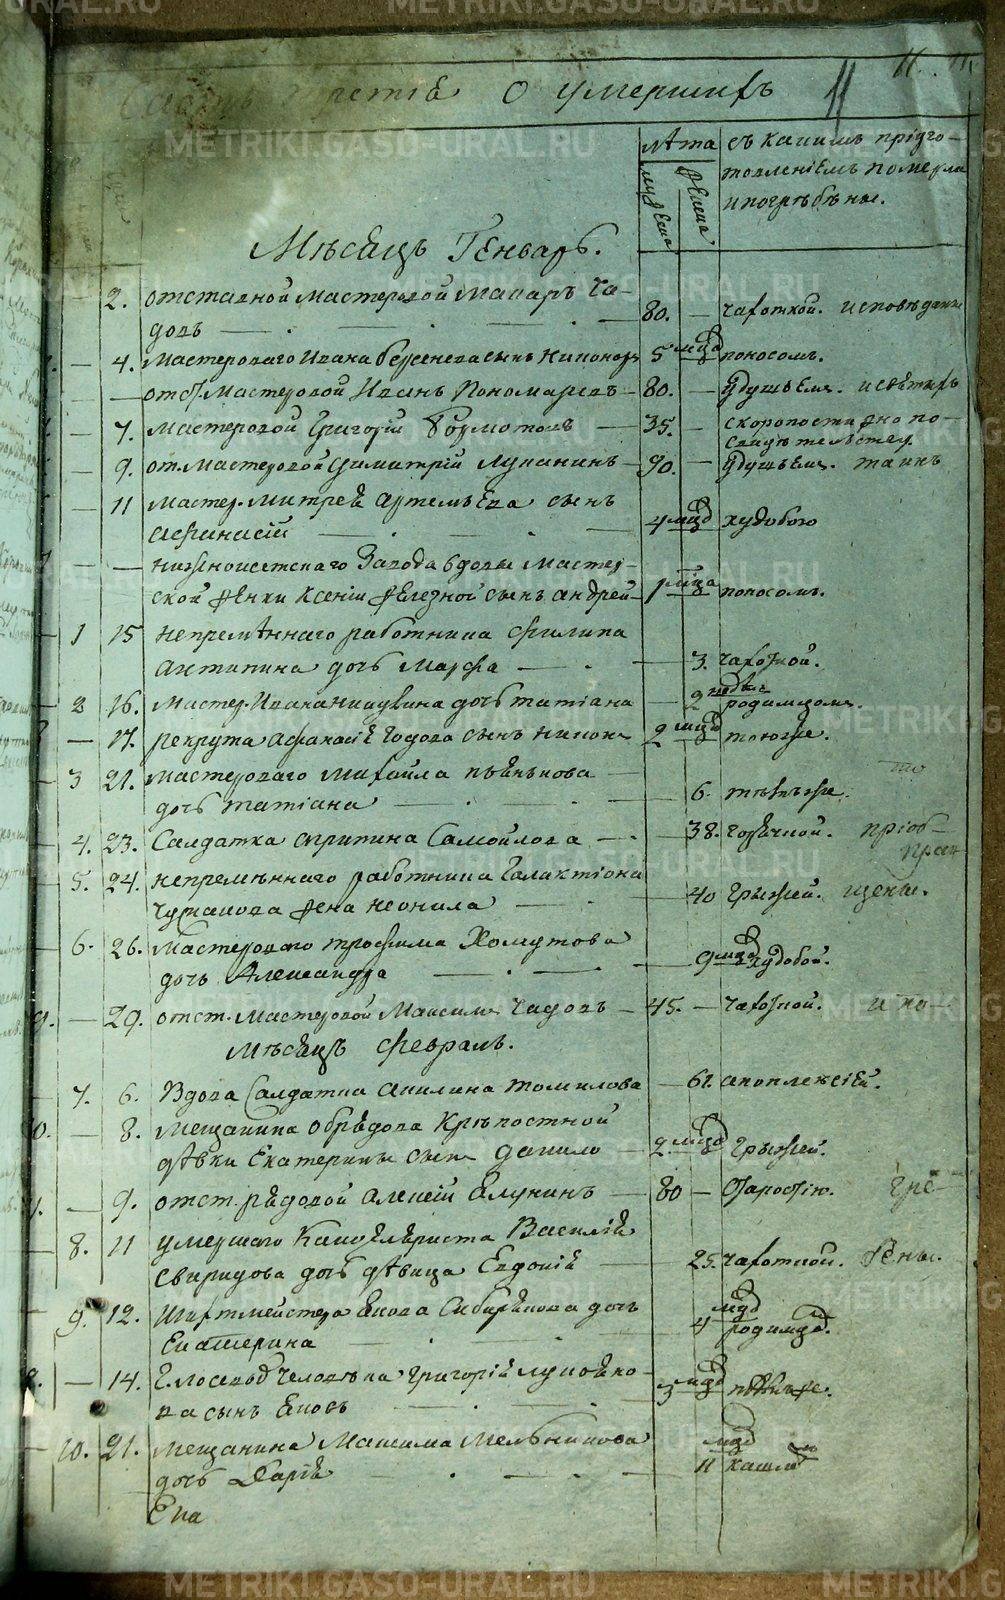 METRIKI.GASO-URAL.RU
Часть третія О умершихъ
11
11.
лѣта
съ какимъ пріуго-
муж
жен
товленіемъ померли
и погребены.
Мѣсяцъ Генварь.
2. отставной мастеровой Макаръ Ча-
довъ — 80. — чахоткой. исповѣданы
4. мастероваго Ивана сынъ Никоноръ 5 мцд поносомъ.
отст. мастеровой Иванъ Пономаревъ — 80. — удушьемъ.
7. мастеровой Григорій — 35. — скоропостижно по
свидѣтельству
9. от. мастеровой Димитрій Лупанинъ — 90. — удушьемъ. таинъ
11 мастер. Митрея Артемьева сынъ
Афанасій — 4 мцд худобою
Нижноисетскаго Завода вдовы мастер-
ской женки Ксеніи сынъ Андрей 1 мца поносомъ.
1 15 непремѣннаго работника Филипа
Антипина дочь Марфа — 3. чахоткой.
2 16. мастер. Ивана дочь Татіана 2 недѣль родимцомъ.
17. рекрута Афанасія Годова сынъ Никон 2 мцд тоюже.
3 21. мастероваго Михайла
дочь Татіана — 6. тѣмъже.
4. 23. Салдатка Самойлова — 38. горячкой. пріоб-
5. 24. непремѣннаго работника Галактіона
жена Неонила — 40 грыжей. щены.
6. 26. мастероваго Трофима Хомутова
дочь Александра — 9 мцд худобой.
29. отст. мастеровой Максимъ Чадовъ — 45. — чахоткой. и по-
Мѣсяцъ Февраль.
7. 6. Вдова Салдатка Акилина Томилова — 61. апоплексіей.
8. мещанина Обрядова Крѣпостной
дѣвки Екатерины сынъ Данило — 2 мцд грыжей.
9. отст. рядовой Алексѣй — 80 — старостію. гре-
8. 11 умершаго Канцеляриста Василія
Свиридова дочь дѣвица Евдокія — 25. чахоткой. бены.
9. 12. Шихтмейстера Якова Сибирякова дочь
Екатерина — 4 мцд родимцд.
14. человѣка Григорія
ва сынъ Яковъ — 3 мцд
10. 21. мещанина Максима Мельникова
дочь Дарія — 11 мцд кашл
Ека